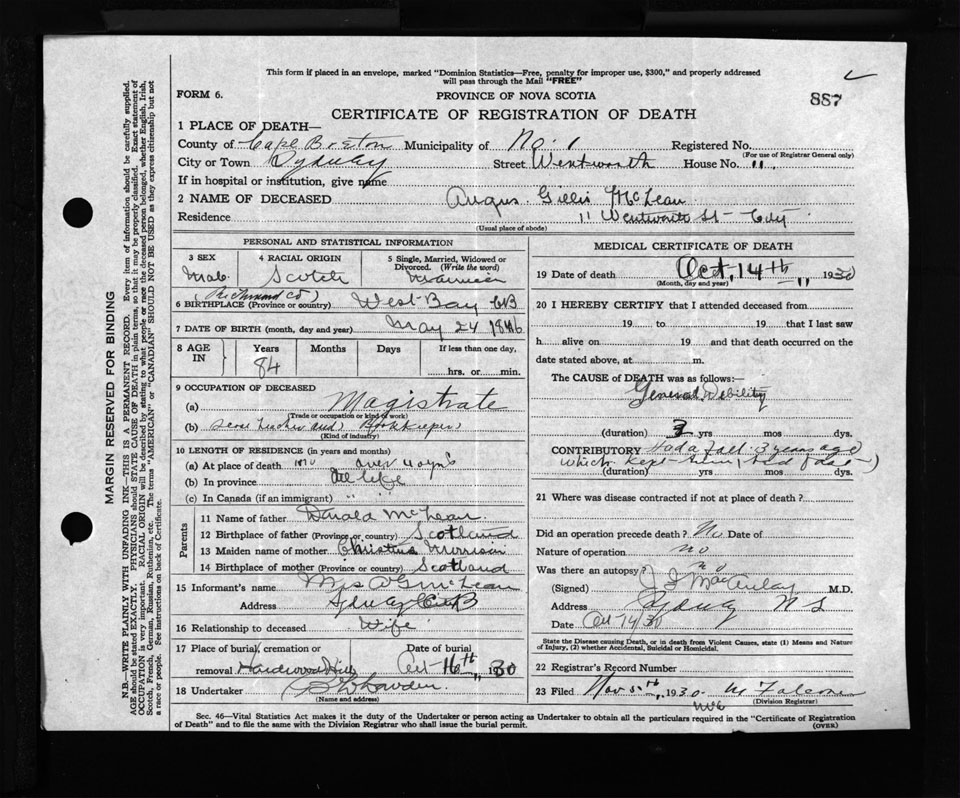 This form if placed in an envelope, marked "Dominion Statistics—Free, penalty for improper use, $300," and properly addressed
will pass through the Mail "FREE"
FORM 6.
PROVINCE OF NOVA SCOTIA
887
CERTIFICATE OF REGISTRATION OF DEATH
1 PLACE OF DEATH—
County of Cape Breton Municipality of No. 1 Registered No.
(For use of Registrar General only)
City or Town Sydney Street Wentworth House No. 11
If in hospital or institution, give name
2 NAME OF DECEASED Angus Gillis McLean
Residence 11 Wentworth St — City
(Usual place of abode)
PERSONAL AND STATISTICAL INFORMATION
3 SEX 4 RACIAL ORIGIN 5 Single, Married, Widowed or Divorced. (Write the word)
Male Scotch
(Richmond Co)
6 BIRTHPLACE (Province or country) West Bay CB
7 DATE OF BIRTH (month, day and year) May 24 1846
8 AGE IN Years Months Days If less than one day,
84 hrs. or min.
9 OCCUPATION OF DECEASED
(a) Magistrate
(Trade or occupation or kind of work)
(b) Teacher and Bookkeeper
(Kind of industry)
10 LENGTH OF RESIDENCE (in years and months)
(a) At place of death over 40 yrs
(b) In province All life
(c) In Canada (if an immigrant) " "
Parents
11 Name of father Donald McLean
12 Birthplace of father (Province or country) Scotland
13 Maiden name of mother Morrison
14 Birthplace of mother (Province or country) Scotland
15 Informant's name Mrs A G McLean
Address Sydney CB
16 Relationship to deceased Wife
17 Place of burial, cremation or Date of burial
removal Hardwood Hill Oct 16th, 30
18 Undertaker
(Name and address)
MEDICAL CERTIFICATE OF DEATH
19 Date of death Oct, 14th 1930
(Month, day and year)
20 I HEREBY CERTIFY that I attended deceased from
19 to 19 that I last saw
h alive on 19 and that death occurred on the
date stated above, at m.
The CAUSE of DEATH was as follows:—
General Debility
(duration) 3 yrs mos dys.
CONTRIBUTORY Had a fall 3 years ago
which kept him bed fast
(duration) yrs mos dys.
21 Where was disease contracted if not at place of death?
Did an operation precede death? No Date of
Nature of operation no
Was there an autopsy? no
(Signed) M.D.
Address Sydney N S
Date Oct 14/30
State the Disease causing Death, or in death from Violent Causes, state (1) Means and Nature
of Injury, (2) whether Accidental, Suicidal or Homicidal.
22 Registrar's Record Number
23 Filed Nov 5th, 1930
(Division Registrar)
Sec. 46—Vital Statistics Act makes it the duty of the Undertaker or person acting as Undertaker to obtain all the particulars required in the "Certificate of Registration
of Death" and to file the same with the Division Registrar who shall issue the burial permit.
(OVER)
MARGIN RESERVED FOR BINDING
N.B.—WRITE PLAINLY WITH UNFADING INK—THIS IS A PERMANENT RECORD. Every item of information should be carefully supplied.
AGE should be stated EXACTLY. PHYSICIANS should STATE CAUSE OF DEATH in plain terms, so that it may be properly classified. Exact statement of
OCCUPATION is very important. RACIAL ORIGIN will be described by stating to what people or race the deceased person belonged, whether English, Irish,
Scotch, French, German, Russian, Ruthenian, etc. The terms "AMERICAN" or "CANADIAN" SHOULD NOT BE USED as they express citizenship but not
a race or people. See instructions on back of Certificate.